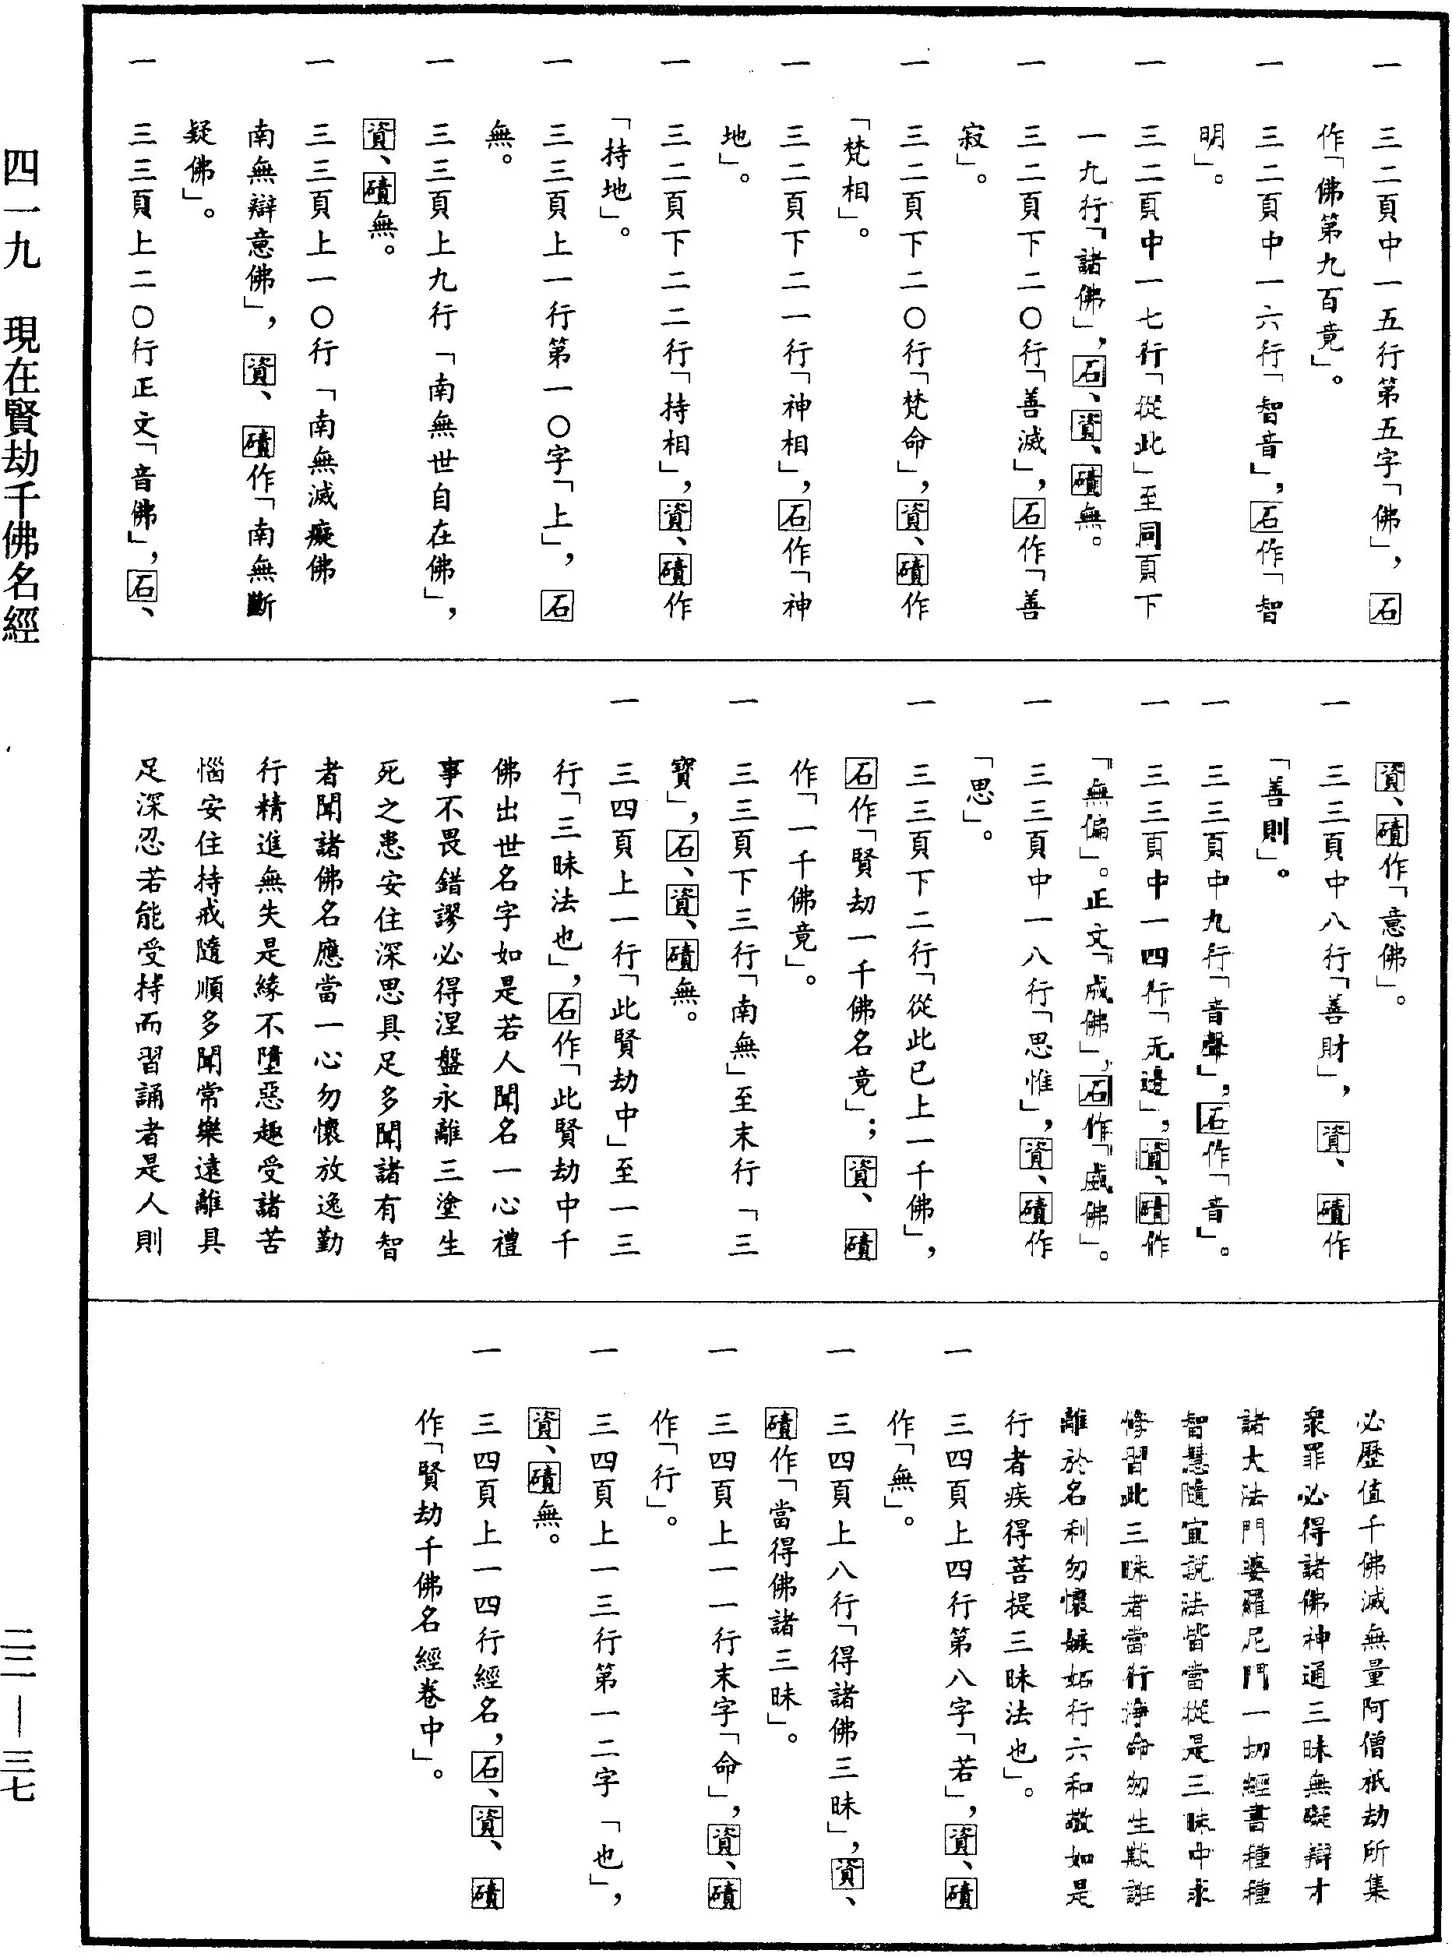 一　三二頁中一五行第五字「佛」，石
作「佛第九百竟」。
一　三二頁中一六行「智音」，石作「智
明」。
一　三二頁中一七行「從此」至同頁下
一九行「諸佛」，石、資、磧無。
一　三二頁下二〇行「善滅」，石作「善
寂」。
一　三二頁下二〇行「梵命」，資、磧作
「梵相」。
一　三二頁下二一行「神相」，石作「神
地」。
一　三二頁下二二行「持相」，資、磧作
「持地」。
一　三三頁上一行第一〇字「上」，石
無。
一　三三頁上九行「南無世自在佛」，
資、磧無。
一　三三頁上一〇行「南無滅癡佛
南無辯意佛」，資、磧作「南無斷
疑佛」。
一　三三頁上二〇行正文「音佛」，石、
資、磧作「意佛」。
一　三三頁中八行「善財」，資、磧作
「善則」。
一　三三頁中九行「音聲」，石作「音」。
一　三三頁中一四行「无邊」，資、磧作
「無偏」。正文「成佛」，石作「威佛」。
一　三三頁中一八行「思惟」，資、磧作
「思」。
一　三三頁下二行「從此已上一千佛」，
石作「賢劫一千佛名竟」；資、磧
作「一千佛竟」。
一　三三頁下三行「南無」至末行「三
寶」，石、資、磧無。
一　三四頁上一行「此賢劫中」至一三
行「三昧法也」，石作「此賢劫中千
佛出世名字如是若人聞名一心禮
事不畏錯謬必得涅盤永離三塗生
死之患安住深思具足多聞諸有智
者聞諸佛名應當一心勿懷放逸勤
行精進無失是緣不墮惡趣受諸苦
惱安住持戒隨順多聞常樂遠離具
足深忍若能受持而習誦者是人則
必歷值千佛滅無量阿僧祇劫所集
衆罪必得諸佛神通三昧無礙辯才
諸大法門婆羅尼門一切經書種種
智慧隨宜説法皆當從是三昧中求
修習此三昧者當行淨命勿生欺誑
離於名利勿懷嫉妬行六和敬如是
行者疾得菩提三昧法也」。
一　三四頁上四行第八字「若」，資、磧
作「無」。
一　三四頁上八行「得諸佛三昧」，資、
磧作「當得佛諸三昧」。
一　三四頁上一一行末字「命」，資、磧
作「行」。
一　三四頁上一三行第一二字「也」，
資、磧無。
一　三四頁上一四行經名，石、資、磧
作「賢劫千佛名經卷中」。
四一九　現在賢劫千佛名經
二二—三七